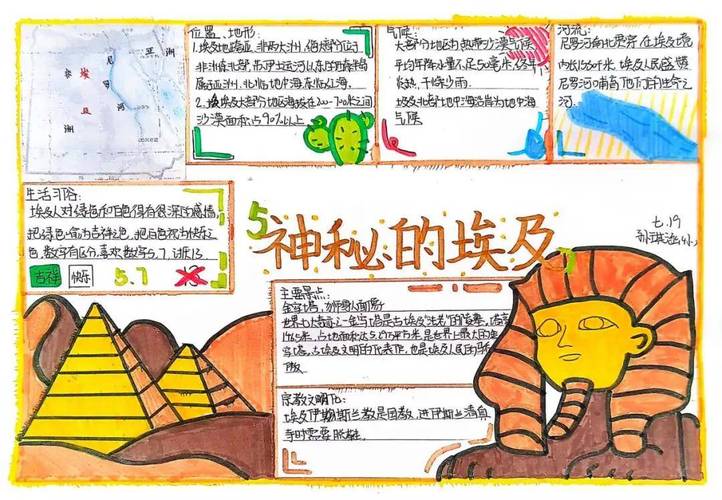 亚
洲
埃
及
尼
罗
河
非
洲
位置、地形:
1.埃及地跨亚、非两大洲,但大部分位于
非洲东北部,苏伊士运河以东的西奈半岛
属于亚洲,北临地中海东临红海。
2.埃及大部分地区海拔在200-700米之间
沙漠面积占90%以上。
气候:
大部分地区为热带沙漠气候
平均年降水量不足50毫米,终年
炎热,干燥少雨。
埃及北部地中海沿岸为地中海
气候
河流:
尼罗河向北贯穿在埃及境
内长1530千米,埃及人民盛赞
尼罗河哺育他们的生命之
河.
生活习俗:
埃及人对绿色和白色很有很深的感情,
把绿色称为吉祥之色,把白色视为快乐之
色,数字有区分,喜欢数字5.7,讨厌13
吉祥
快乐
5.7
神秘的埃及
七.19
主要景点:
金字塔,狮身人面像
世界七大奇迹之一金字塔是古埃及
146.5米,占地面积达5.29万平方米,是世界上最大的金
字塔,古埃及文明的代表作,也是埃及人民的骄
傲
宗教文明化:
埃及伊斯兰教是国教,进伊斯兰清真
寺时需要脱鞋.